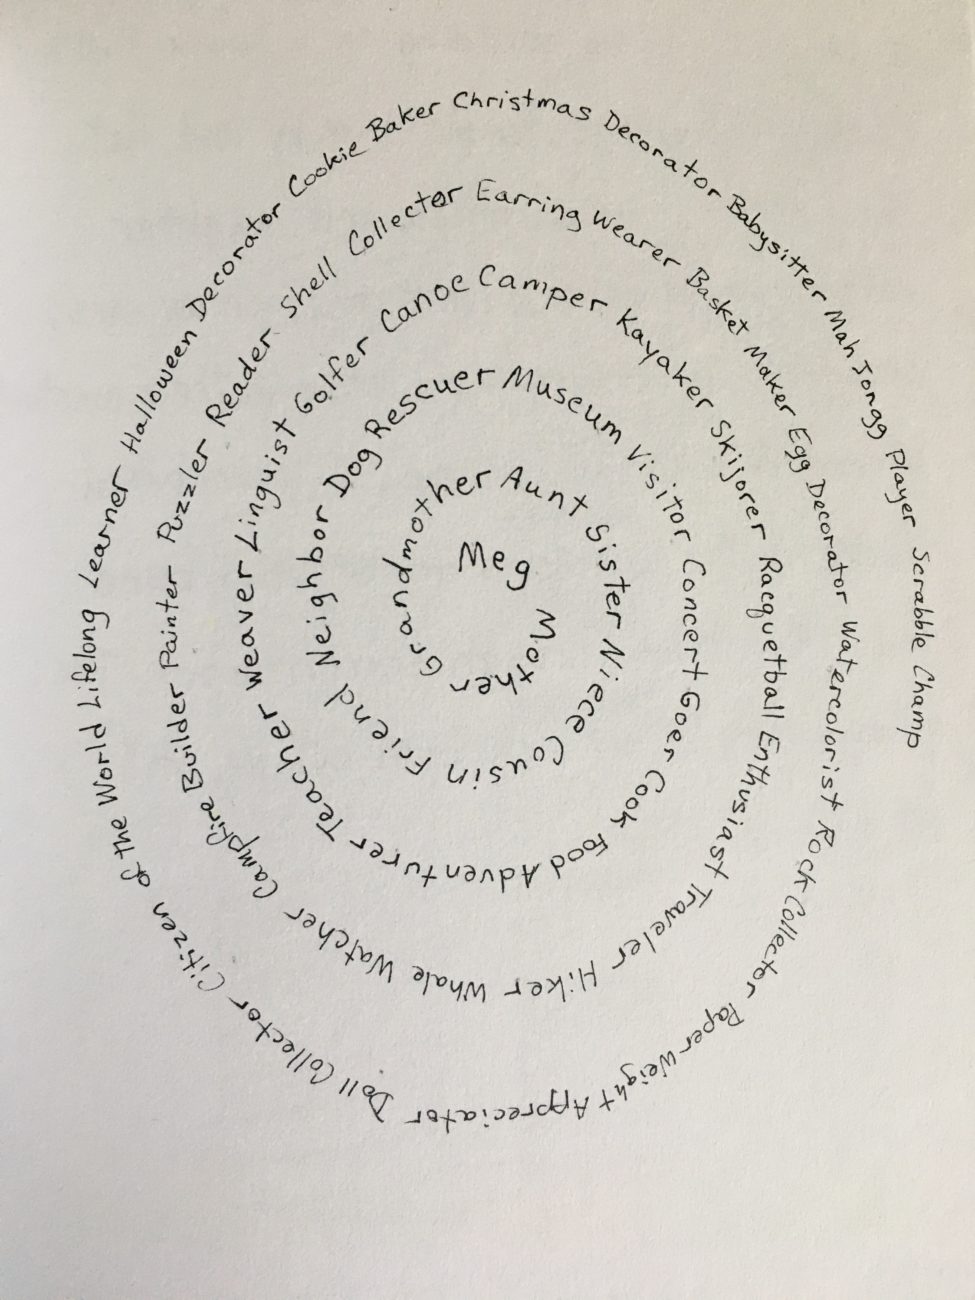 Meg Mother Grandmother Aunt Sister Niece Cousin Friend Neighbor Dog Rescuer Museum Visitor Concert Goer Cook Food Adventurer Teacher Weaver Linguist Golfer Canoe Camper Kayaker Skijorer Racquetball Enthusiast Traveler Hiker Whale Watcher Campfire Builder Painter Puzzler Reader Shell Collector Earring Wearer Basket Maker Egg Decorator Watercolorist Rock Collector Paper Weight Appreciator Doll Collector Citizen of the World Lifelong Learner Halloween Decorator Cookie Baker Christmas Decorator Babysitter Mah Jongg Player Scrabble Champ